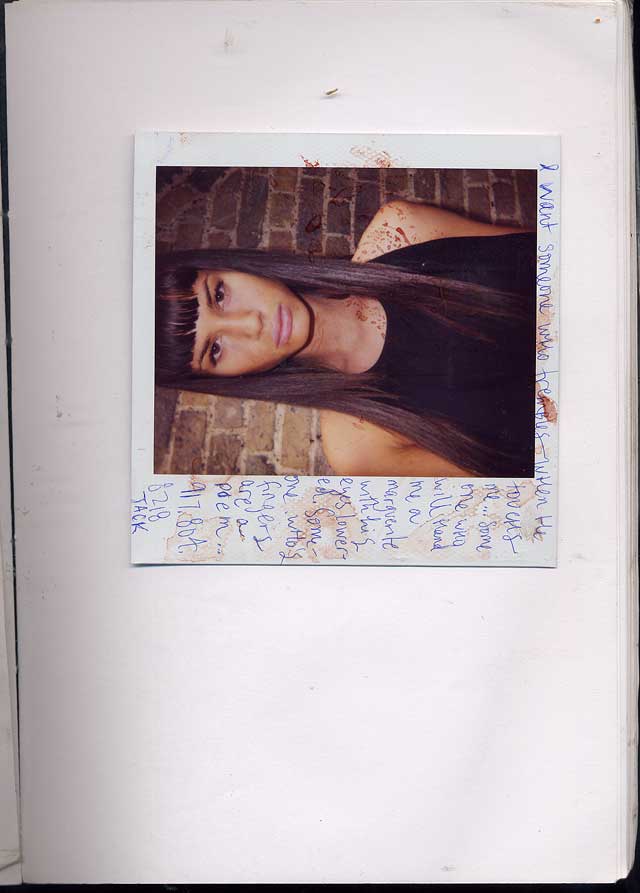 I want someone who trembles when he
touches
me... some
one who
will hand
me a
marguerite
with his
eyes lower-
ed. Some-
one who's
fingers
are a
poem...
8218
JACK